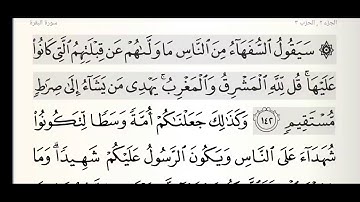 الجزء ٢، الحزب ٣
سورة البقرة
۞ سَيَقُولُ ٱلسُّفَهَآءُ مِنَ ٱلنَّاسِ مَا وَلَّىٰهُمْ عَن قِبْلَتِهِمُ ٱلَّتِى كَانُوا۟
عَلَيْهَا ۚ قُل لِّلَّهِ ٱلْمَشْرِقُ وَٱلْمَغْرِبُ ۚ يَهْدِى مَن يَشَآءُ إِلَىٰ صِرَٰطٍ
مُّسْتَقِيمٍ ١٤٢ وَكَذَٰلِكَ جَعَلْنَٰكُمْ أُمَّةً وَسَطًا لِّتَكُونُوا۟
شُهَدَآءَ عَلَى ٱلنَّاسِ وَيَكُونَ ٱلرَّسُولُ عَلَيْكُمْ شَهِيدًا ۗ وَمَا